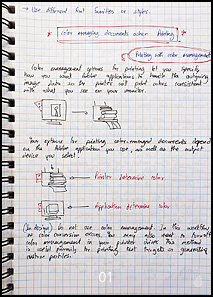 → Use different font families or styles.
* Color managing documents when Printing *
Printing with color management
Color management options for printing let you specify
how you want Adobe applications to handle the outgoing
image data so the printer will print colors consistent
with what you see on your monitor.
Your options for printing color-managed documents depend
on the Adobe application you use, as well as the output
device you select.
→ Printer determine color
→ Application determine color
(In design) Do not use color management. In this workflow
no color conversion occurs. You may also need to turn off
color management in your printer driver. This method
is useful primarily for printing test targets or generating
custom profiles.
01